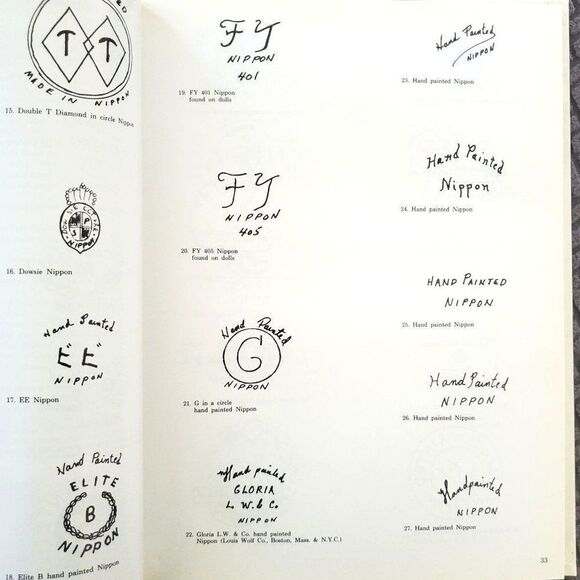 T T
MADE IN NIPPON
15. Double T Diamond in circle Nippon
NIPPON
16. Dowsie Nippon
Hand Painted
"E E"
NIPPON
17. EE Nippon
Hand Painted
ELITE
B
NIPPON
18. Elite B hand painted Nippon
FY
NIPPON
401
19. FY 401 Nippon
found on dolls
FY
NIPPON
405
20. FY 405 Nippon
found on dolls
Hand Painted
G
NIPPON
21. G in a circle
hand painted Nippon
Hand painted
GLORIA
L. W. & Co.
NIPPON
22. Gloria L.W. & Co. hand painted
Nippon (Louis Wolf Co., Boston, Mass. & N.Y.C.)
Hand Painted
NIPPON
23. Hand painted Nippon
Hand Painted
Nippon
24. Hand painted Nippon
HAND PAINTED
NIPPON
25. Hand painted Nippon
Hand Painted
NIPPON
26. Hand painted Nippon
Handpainted
NIPPON
27. Hand painted Nippon
33